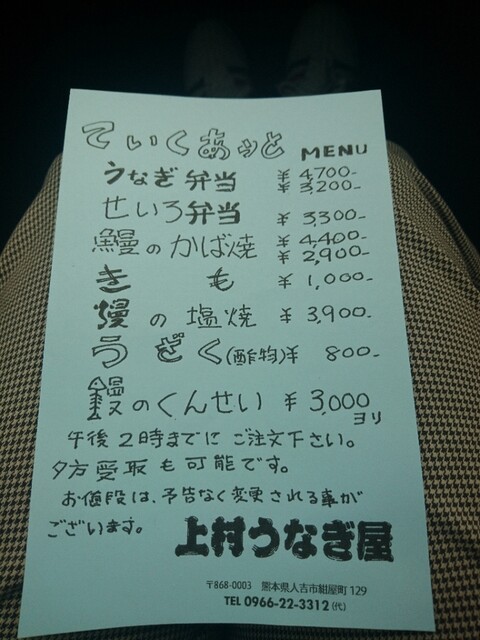 ていくあっと MENU
うなぎ弁当 ¥4,700-
¥3,200-
せいろ弁当 ¥3,300-
鰻のかば焼 ¥4,400-
¥2,900-
きも ¥1,000-
鰻の塩焼 ¥3,900-
うざく(酢物)¥800-
鰻のくんせい ¥3,000
ヨリ
午後2時までにご注文下さい。
夕方受取も可能です。
お値段は、予告なく変更される事が
ございます。
上村うなぎ屋
〒868-0003 熊本県人吉市紺屋町129
TEL 0966-22-3312(代)